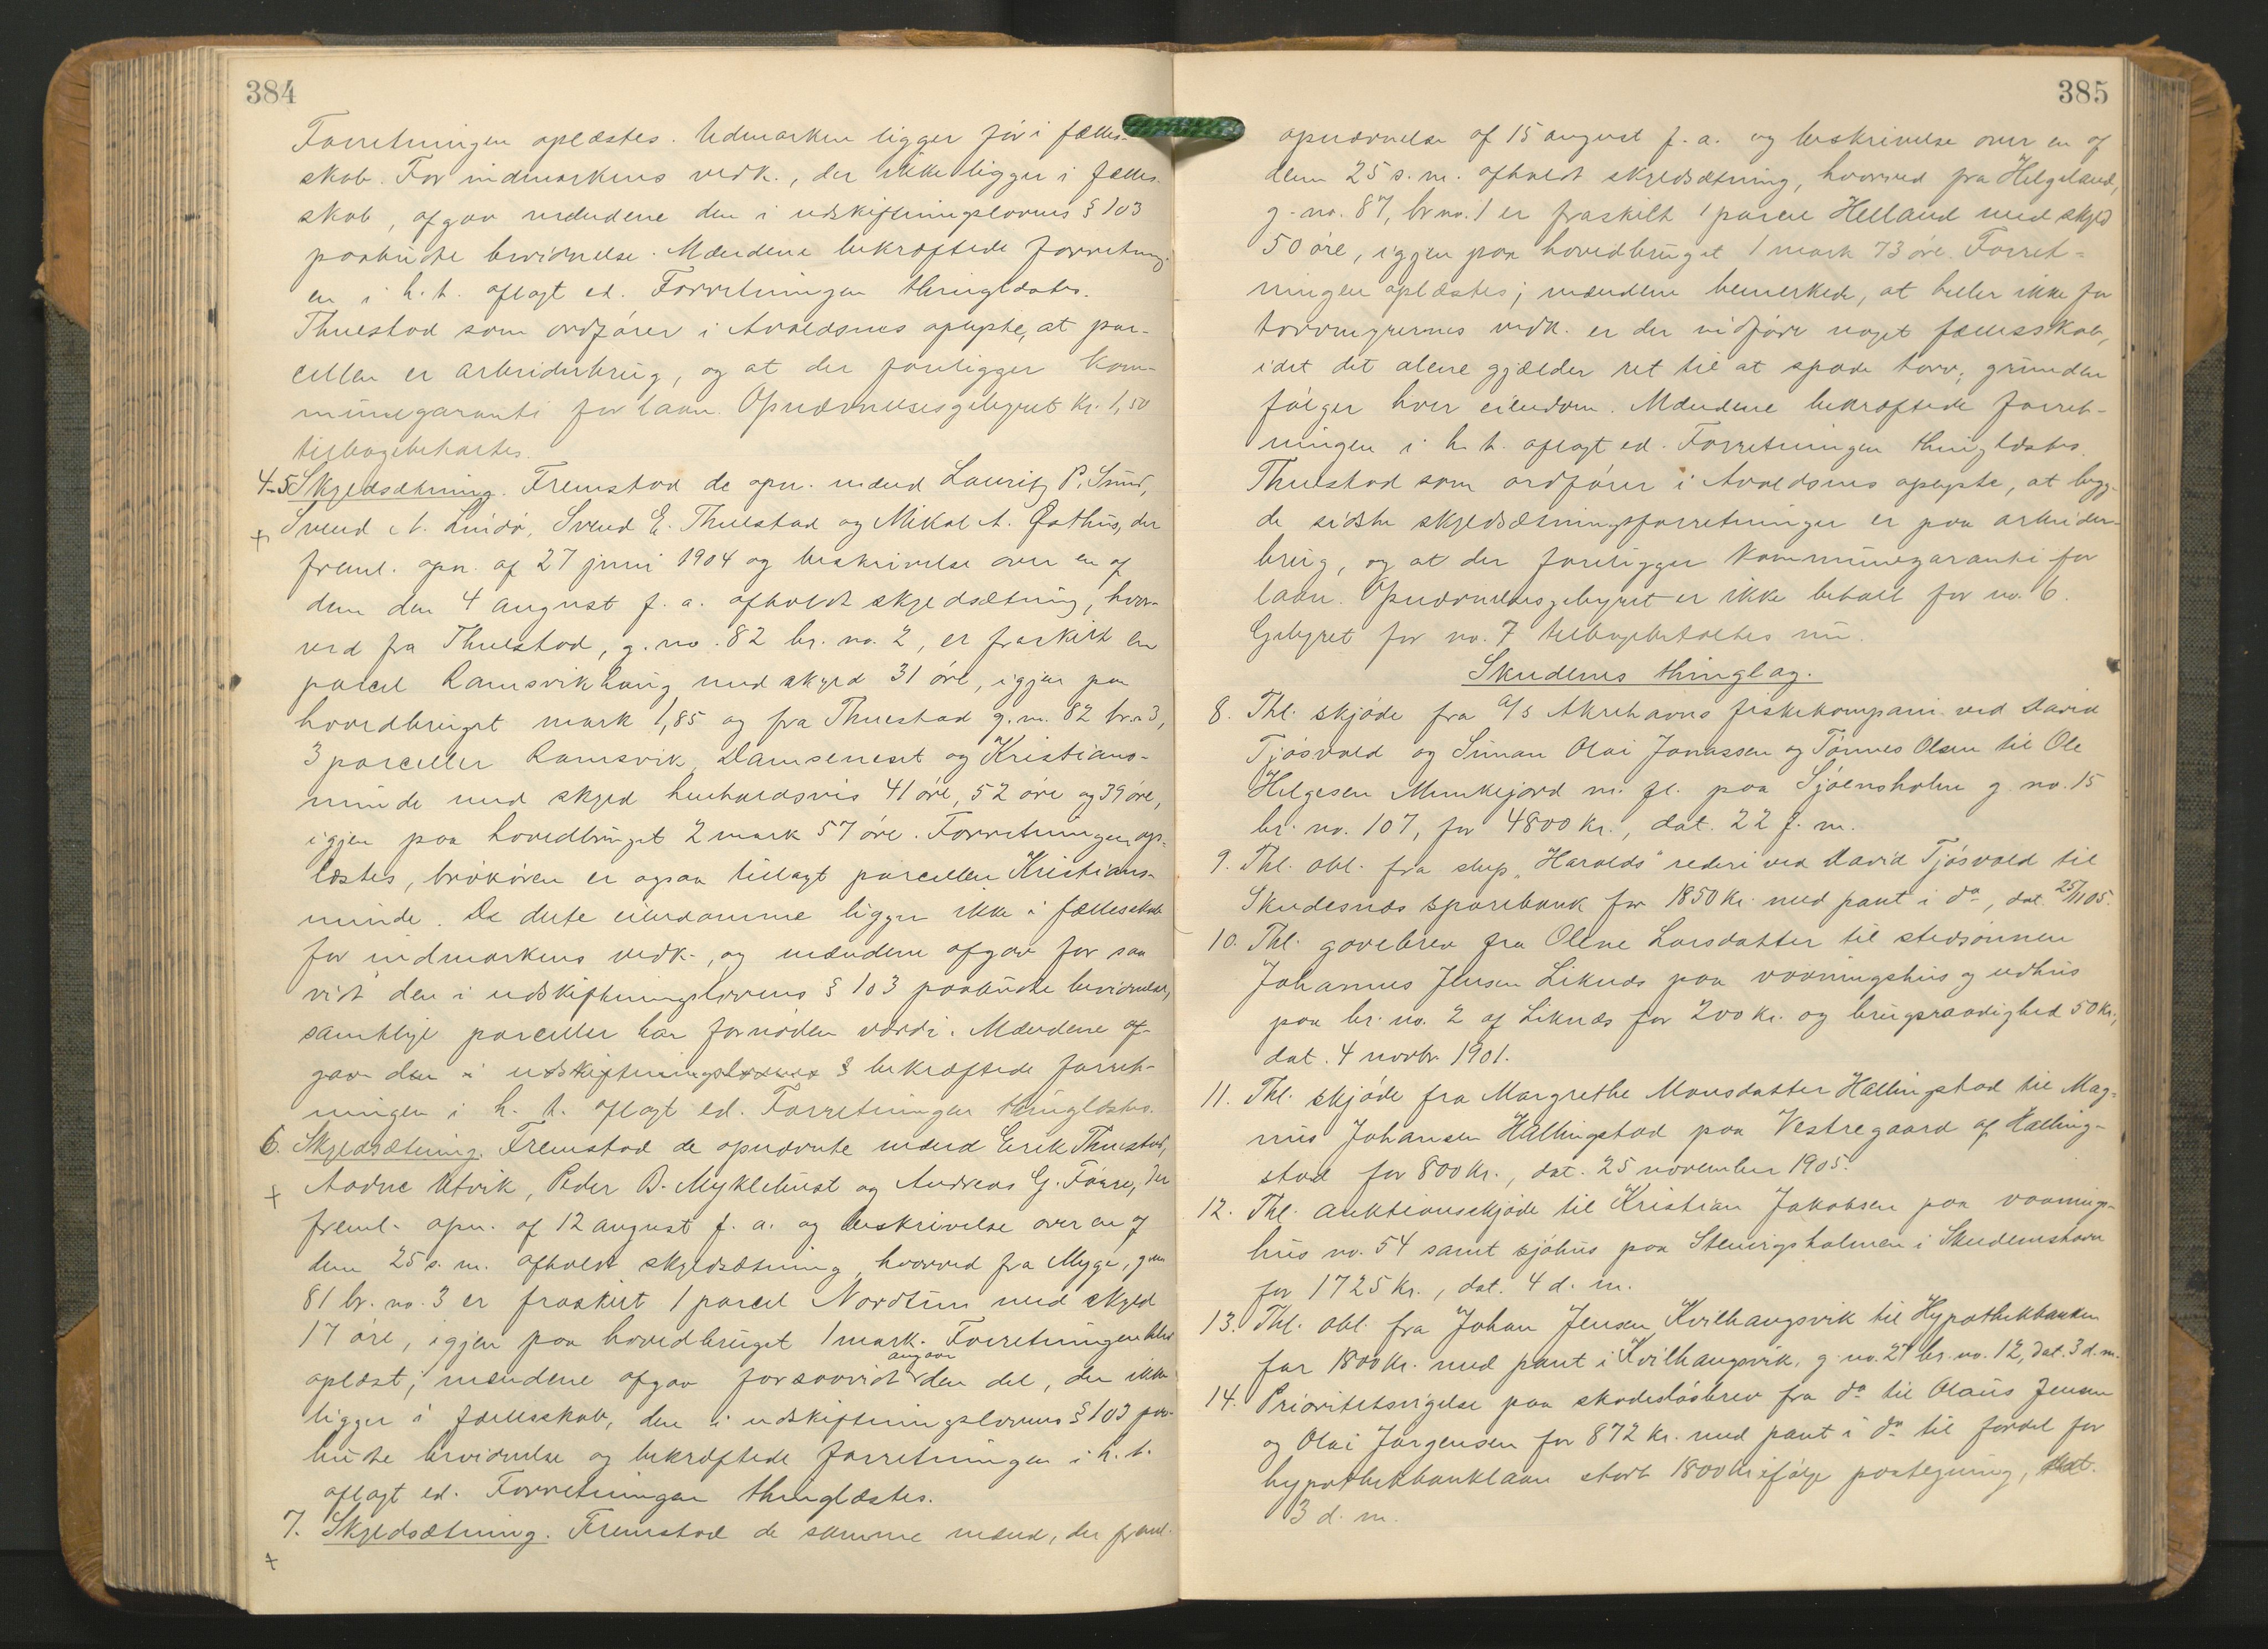 384
Forretningen oplæstes. Udmarken ligger før i fælles-
skab. For indmarkens vedk., der ikke ligger i fælles-
skab, afgav mændene den i udskiftningslovens § 103
paabudte bevidnelse. Mændene bekræftede forretning-
en i h. t. aflagt ed. Forretningen thinglæstes.
Thuestad som ordfører i Avaldsnes oplyste, at par-
cellen er arbeiderbrug, og at der foreligger kom-
munegaranti for laan. Opnævnelsesgebyret kr. 1,50
tilbagebetaltes.
4-5 Skyldsætning. Fremstod de opn. mænd Lauritz P. Sund,
Svend A. Lindø, Svend E. Thuestad og Mikal A. Østhus, der
freml. opn. af 27 juni 1904 og beskrivelse over en af
dem den 4 august f. a. afholdt skyldsætning, hvor-
ved fra Thuestad, g. no. 82 br. no. 2, er fraskilt en
parcel Ramsvikhaug med skyld 31 øre, igjen paa
hovedbruget mark 1,85 og fra Thuestad g. n. 82 br. n 3,
3 parceller Ramsvik, Damseneset og Kristians-
minde med skyld henholdsvis 41 øre, 52 øre og 39 øre,
igjen paa hovedbruget 2 mark 57 øre. Forretningen op-
læstes, brøkøren er ogsaa tillagt parcellen Kristians-
minde. De delte eiendomme ligger ikke i fællesskab
for indmarkens vedk., og mændene afgav for saa
vidt den i udskiftningslovens § 103 paabudte bevidnelse,
samtlige parceller har fornøden værdi. Mændene af-
gav den i udskiftningslovens § bekræftede forret-
ningen i h. t. aflagt ed. Forretningen thinglæstes.
6. Skyldsætning. Fremstod de opnævnte mænd Erik Thuestad,
Aadne Utvik, Peder B. Myklebust og Andreas G. Førre, der
freml. opn. af 12 august f. a. og beskrivelse over en af
dem 25 s. m. afholdt skyldsætning, hvorved fra Myge, g. no
81 br. no. 3 er fraskilt 1 parcel Nordtun med skyld
17 øre, igjen paa hovedbruget 1 mark. Forretningen blev
oplæst; mændene afgav forsaavidt angaar den del, der ikke
ligger i fællesskab, den i udskiftningslovens § 103 paa-
budte bevidnelse og bekræftede forretningen i h. t.
aflagt ed. Forretningen thinglæstes.
7. Skyldsætning. Fremstod de samme mænd, der freml.
385
opnævnelse af 15 august f. a. og beskrivelse over en af
dem 25 s. m. afholdt skyldsætning, hvorved fra Helgeland,
g. no. 87, br no. 1 er fraskilt 1 parcel Helland med skyld
50 øre, igjen paa hovedbruget 1 mark 73 øre. Forret-
ningen oplæstes; mændene bemerkede, at heller ikke for
torvmyrernes vedk. er der vidføre noget fællesskab,
idet det alene gjælder ret til at spade torv; grunden
følger hver eiendom. Mændene bekræftede forret-
ningen i h. t. aflagt ed. Forretningen thinglæstes.
Thuestad som ordfører i Avaldsnes oplyste, at begg-
de sidste skyldsætningsforretninger er paa arbeider-
brug, og at der foreligger kommunegaranti for
laan. Opnævnelsesgebyret er ikke betalt for no. 6.
Gebyret for no. 7 tilbagebetaltes nu.
Skudenes thinglag.
8. Thl. skjøde fra A/S Akrehavns fiskekompani ved David
Tjøsvold og Simon Olai Jonassen og Tønnes Olsen til Ole
Helgesen Munkejord m. fl. paa Sjøensholm g. no. 15
br. no. 107, for 4800 kr., dat. 22 f. m.
9. Thl. obl. fra slup "Haralds" rederi ved David Tjøsvold til
Skudesnæs sparebank for 1850 kr. med pant i do, dat. 25/11 05.
10. Thl. gavebrev fra Olene Larsdatter til stedsønnen
Johannes Jensen Liknæs paa vaaningshus og udhus
paa br. no. 2 af Liknæs for 200 kr. og brugsraadighed 50 kr.,
dat. 4 novbr. 1901.
11. Thl. skjøde fra Margrethe Monsdatter Hællingstad til Mag-
nus Johansen Hællingstad paa Vestregaard af Hælling-
stad for 800 kr., dat. 25 november 1905.
12. Thl. auktionsskjøde til Kristian Jakobsen paa vaanings-
hus no. 54 samt sjøhus paa Steuigsholmen i Skudeneshavn
for 1725 kr., dat. 4 d. m.
13. Thl. obl. fra Johan Jensen Kvilhaugsvik til Hypothekbanken
for 1800 kr. med pant i Kvilhaugsvik, g. no. 27 br. no. 12, dat. 3 d. m.
14. Prioritetsvigelse paa skadesløsbrev fra do til Olaus Jensen
og Olai Jørgensen for 872 kr. med pant i do til fordel for
hypothekbanklaan stort 1800 kr ifølge paategning, dat.
3 d. m.